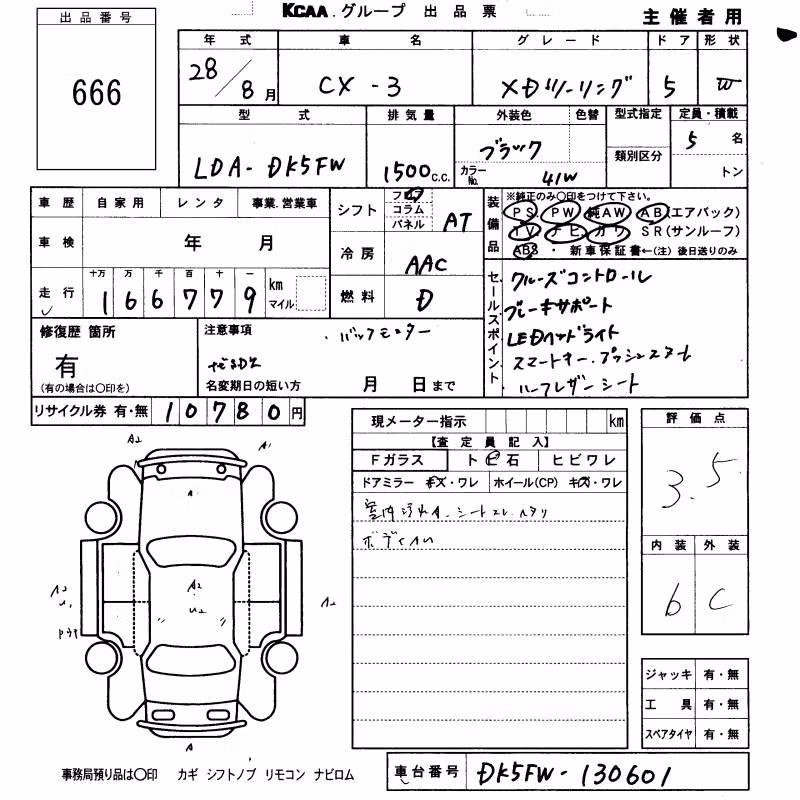 KCAA.グループ 出品票
主催者用
出品番号
666
年式 車名 グレード ドア 形状
28/8月 CX-3 XDツーリング 5 W
型式 排気量 外装色 色替 型式指定 定員・積載
LDA-DK5FW 1500c.c. ブラック 5名
カラーNo. 41W 類別区分 トン
車歴 自家用 レンタ 事業.営業車
車検 年 月
走行 十万 万 千 百 十 一
166779 km マイル
シフト フロア コラム パネル AT
冷房 AAC
燃料 D
装備品 ※純正のみ〇印をつけて下さい。
PS. PW 純AW. AB(エアバック)
TV. ナビ. カワ SR(サンルーフ)
ABS ・ 新車保証書←(注) 後日送りのみ
セールスポイント
クルーズコントロール
ブレーキサポート
LEDヘッドライト
スマートキー.プッシュスタート
ハーフレザーシート
修復歴 箇所
有
(有の場合は〇印を)
注意事項
・バックモニター
名変期日の短い方 月 日まで
リサイクル券 有・無 10780円
現メーター指示 km
【査定員記入】
Fガラス ト ビ 石 ヒビワレ
ドアミラー キズ・ワレ ホイール(CP) キズ・ワレ
ボディ
評価点
3.5
内装 外装
b C
A2 A1
A
A2
A2 U2
U
A2
A
ジャッキ 有・無
工具 有・無
スペアタイヤ 有・無
事務局預り品は〇印 カギ シフトノブ リモコン ナビロム
車台番号 DK5FW-130601